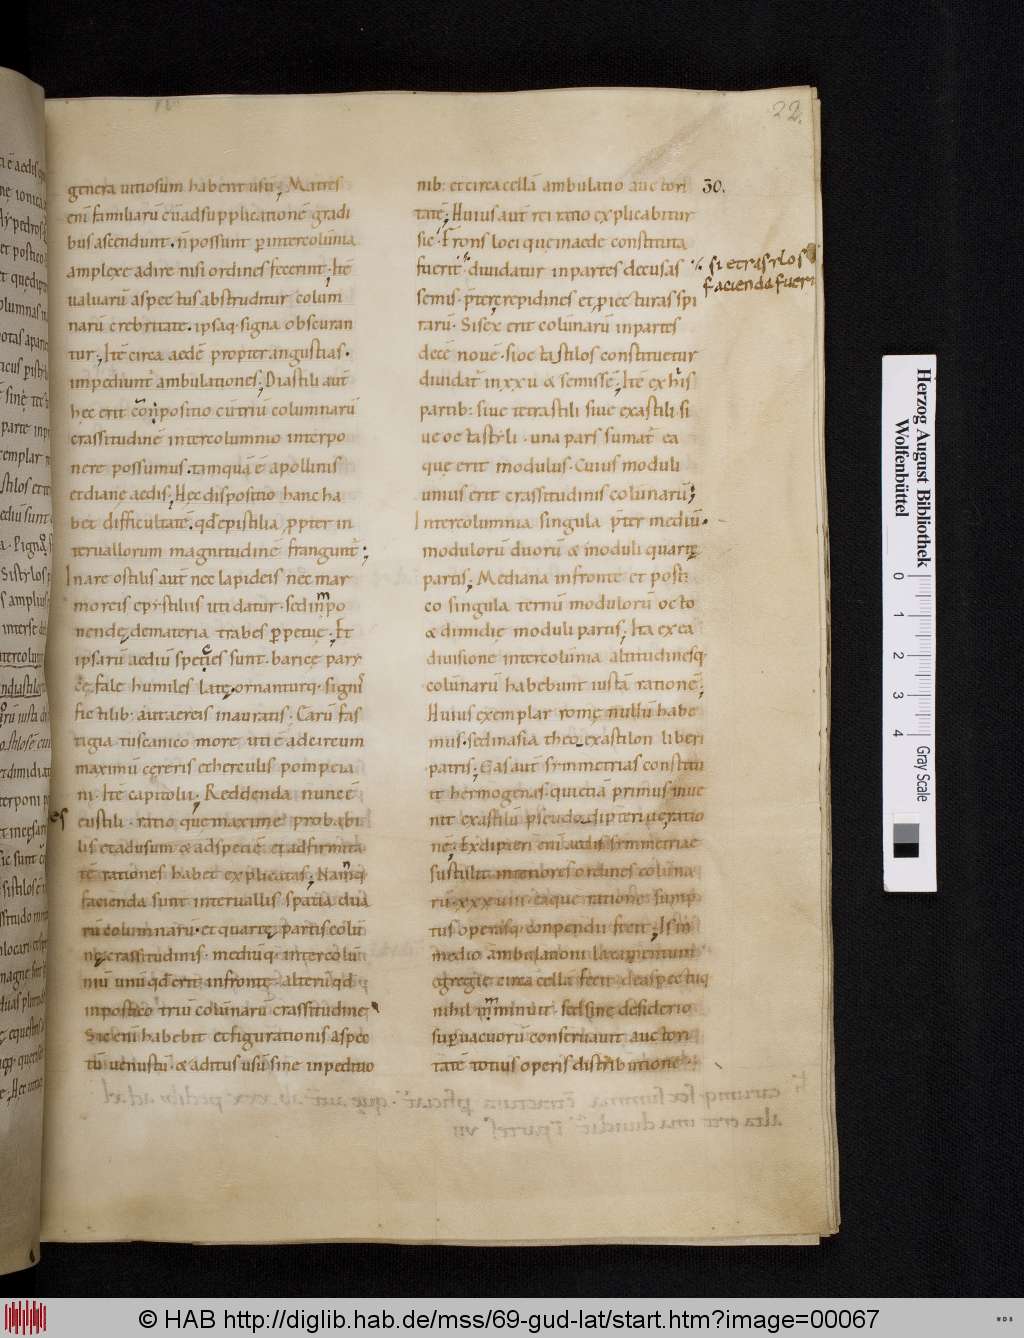 22.
genera uitiosum habent usū; Matres
enī familiarū cū adsupplicationē gradi
bus ascendunt. n̄ possunt p intercolūnia
amplexe adire nisi ordines fecerint; Itē
ualuarū aspectus abstruditur colum
narū crebritate. ipsaq· signa obscuran
tur; Itē circa aedē propter angustias.
impediunt ambulationes; Diastili aut̄
hęc erit conpositio cū triū columnarū
crassitudinē intercolumnio interpo
nere possumus. tamquā ē apollinis
et diane aedis; Hęc dispositio hanc ha
bet difficultatē. qđ epistilia ppter in
teruallorum magnitudinē frangunt;
In are ostilis aut̄ nec lapideis nec mar
moreis epystiliis uti datur. sed inpo
nendę de materia trabes ppetuę; Et
ipsarū aediū species sunt. baricę pary
cę fale humiles latę. ornanturq· signı̄
fictilib: aut aereis inauratis; Carū fas
tigia tuscanico more uti ē ad circum
maximū cęreris et herculis pompeia
ni. Itē capitolii; Reddenda nunc ē
eustili. ratio que maxime probabi
lis et ad usum & ad speciē et ad firmita
tē rationes habet explicatas; Namq·
facienda sunt interuallis spatia duā
rū columnarū. et quartę partis colū
nę crassitudinis. mediūq· intercolūn
niū unū qđ erit in fronte. alterū qđ
in postico triū colūnarū crassitudine
Sic enī habebit et figurationis aspec
tū uenustū. & aditus usū sine inpeditio
nib: et circa cellā ambulatio auctori
30.
tatē; Huius aut̄ rei ratio explicabitur
sic. Frons loci que in aede constituta
fuerit. diuidatur in partes decusas
si etrastylos
facienda fueri
semis. pter crepidines et piecturas spi
rarū. Si sex erit colūnarū in partes
decē nouē. si octastilos constituetur
diuidat̄ in xxu & semissē; Itē ex his
partib: siue tetrastili siue exastili si
ue octastyli. una pars sumat̄ ea
quę erit modulus. Cuius moduli
unius erit crassitudinis colūnarū;
Intercolumnia singula pter mediū.
modulorū duorū & moduli quartę
partis; Mediana in fronte et posti
co singula ternū modulorū octo
& dimidię moduli partis; Ita ex ea
diuisione intercolūnia altitudinesq·
colūnarū habebunt iustā rationē;
Huius exemplar romę nullū habe
mus. sed in asia theo exastilon liberi
patris; Eas aut̄ symmetrias constitu
it hermogenas. qui etiā primus inue
nit exastilū pseudo dipteriue ratio
nē; Ex dipteri enī aedis symmetriae
sustulit interiores ordines colūna
rū. xxxuiii. eaque ratione sump
tus operisq· conpendii fecit; Is in
medio ambulationi laxamentum
egregię circa cellā fecit. de aspectuq·
nihil inminuit. sed sine desiderio
supuacuorū conseruauit aucтori
tatē totius operis distributione
© HAB http://diglib.hab.de/mss/69-gud-lat/start.htm?image=00067
Herzog August Bibliothek
Wolfenbüttel
0 1 2 3 4
Gray Scale